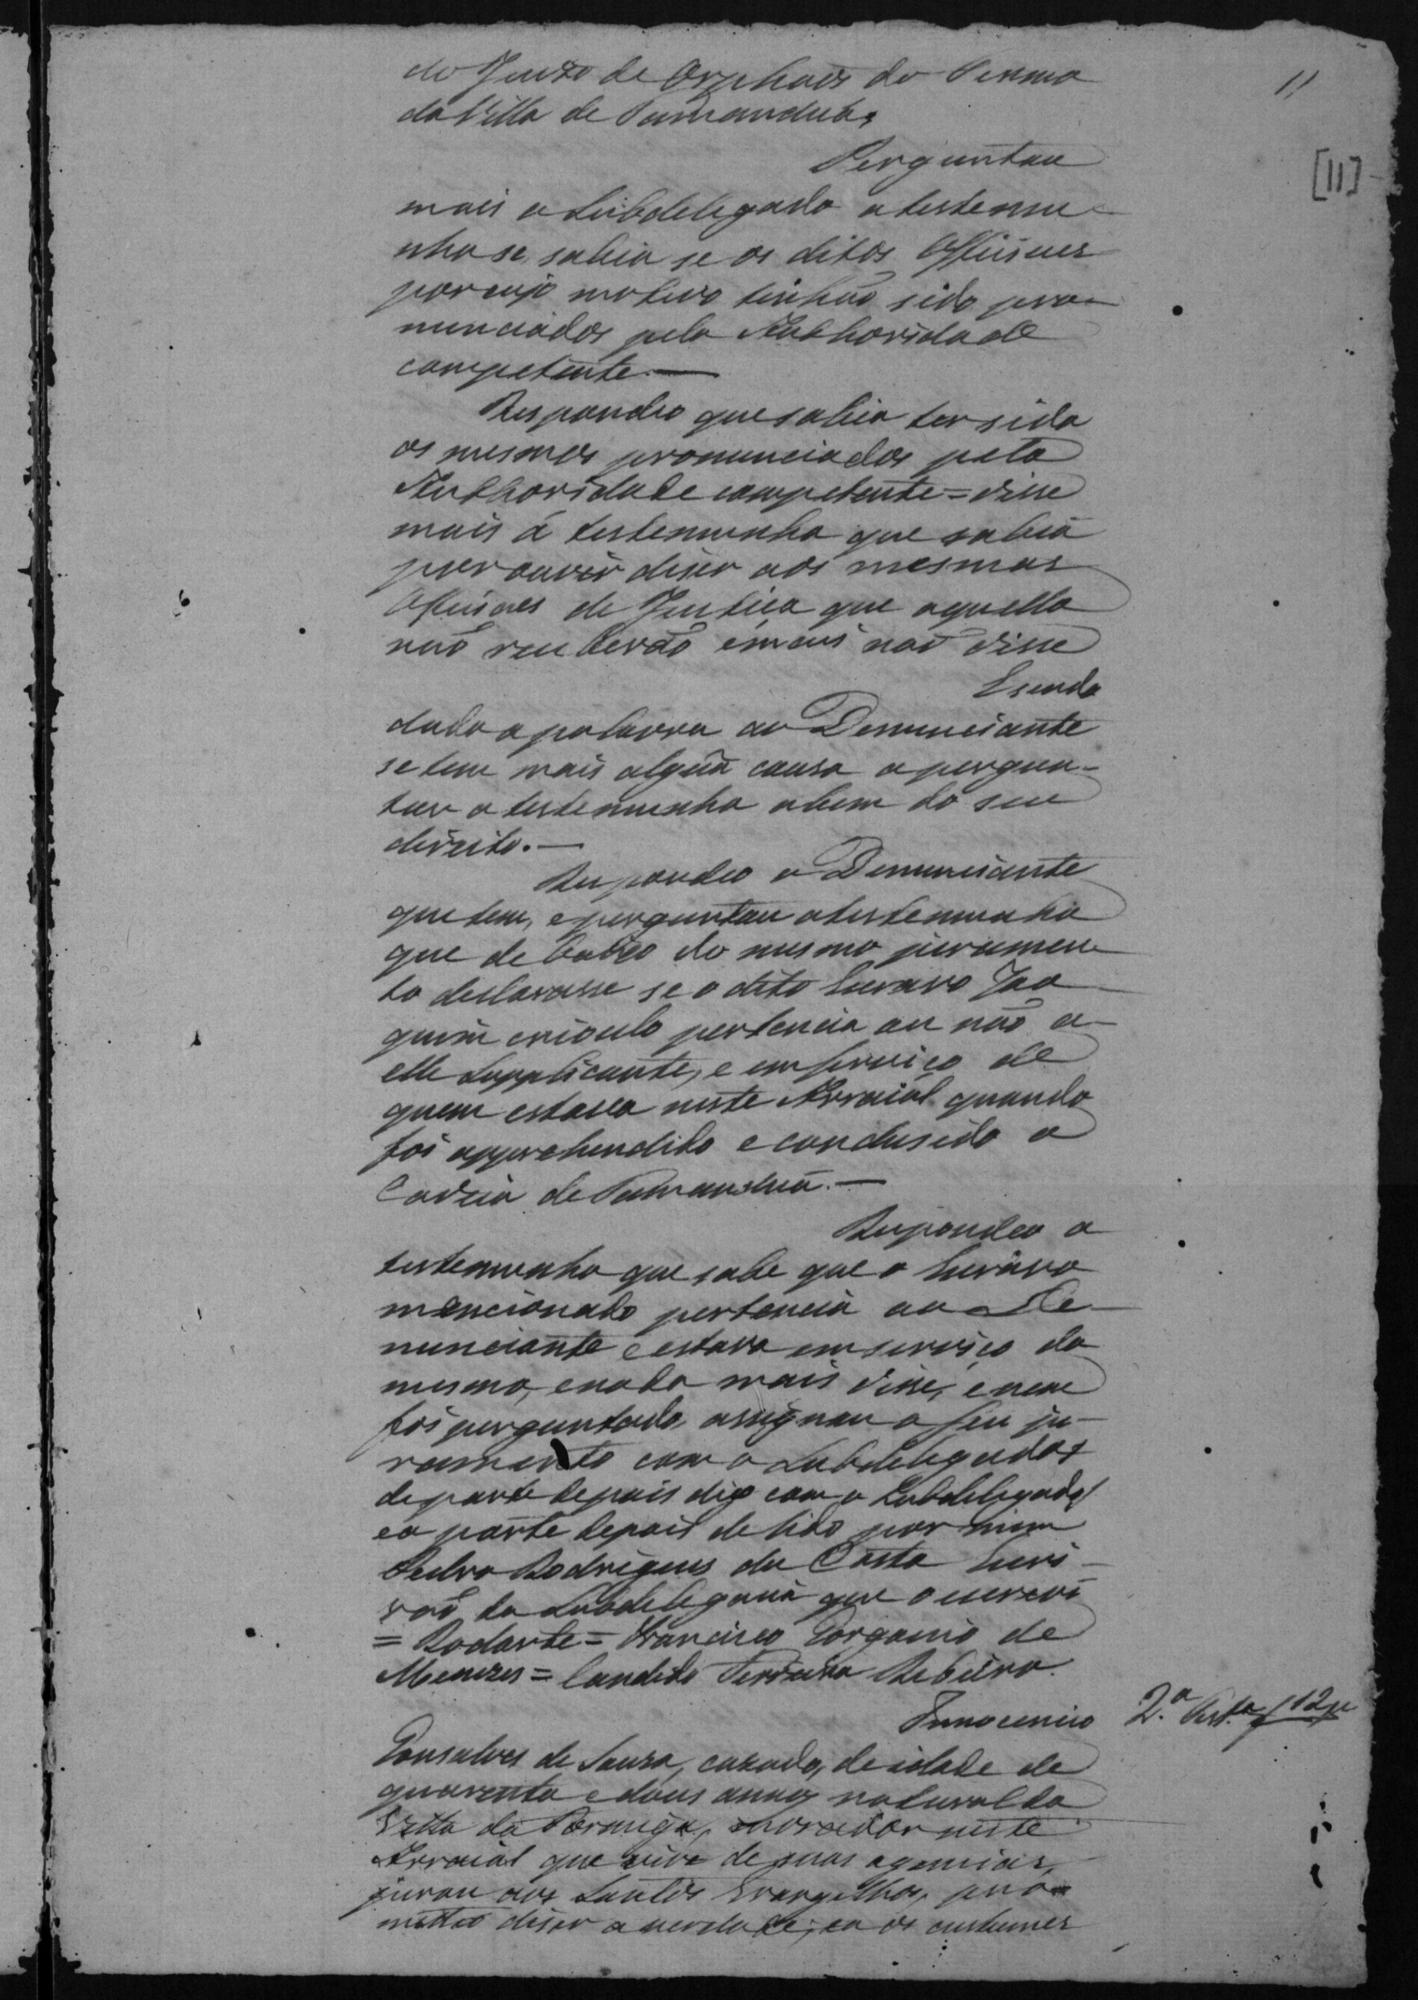 do Juizo de Orphaõs do Termo
da Villa de Tamanduá.
11
[11]
Perguntou
mais o Subdelegado a testemu-
nha se sabia se os ditos Officiaes
por cujo motivo tinhão sido pro-
nunciados pela Authoridade
competente.—
Respondeo que sabia ter sido
os mesmos pronunciados pela
Authoridade competente = disse
mais á testemunha que sabia
por ouvir diser aos mesmos
Officiaes de Justiça que aquella
não receberão e mais não disse
E sendo
dado a palavra ao Denunciante
se tem mais algũa cousa a pergun-
tar a testemunha a bem do seu
direito.—
Respondeo o Denunciante
que tem, e perguntou a testemunha
que debaixo do mesmo juramen-
to declarasse se o dito Escravo Joa-
quim crioulo pertencia ou não a-
elle Supplicante, e em serviço de
quem estava neste Arraial quando
foi apprehendido e condusido a
Cadeia de Tamanduá.—
Respondeo a
testemunha que sabe que o Escravo
mencionado pertencia ao De-
nunciante e estava em serviço do
mesmo, e nada mais disse, e nem
foi perguntado, assignou o seu ju-
ramento com o Subdelegado e
de parte depois digo com o Subdelegado
e a parte depois de lido por mim
Pedro Rodrigues da Costa Escri-
vaõ da Subdelegacia que o escrevi
= Rodarte = Francisco Gorgonio de
Menezes = Candido Ferreira Ribeiro.
Innocencio
2.ª Test.ª f 12
Gonsalves de Sousa, casado, de idade de
quarenta e dous annos natural da
Villa da Formiga, morador neste
Arraial que vive de suas agencias,
jurou aos Santos Evangelhos, pro-
metteo diser a verdade, e a os custumes